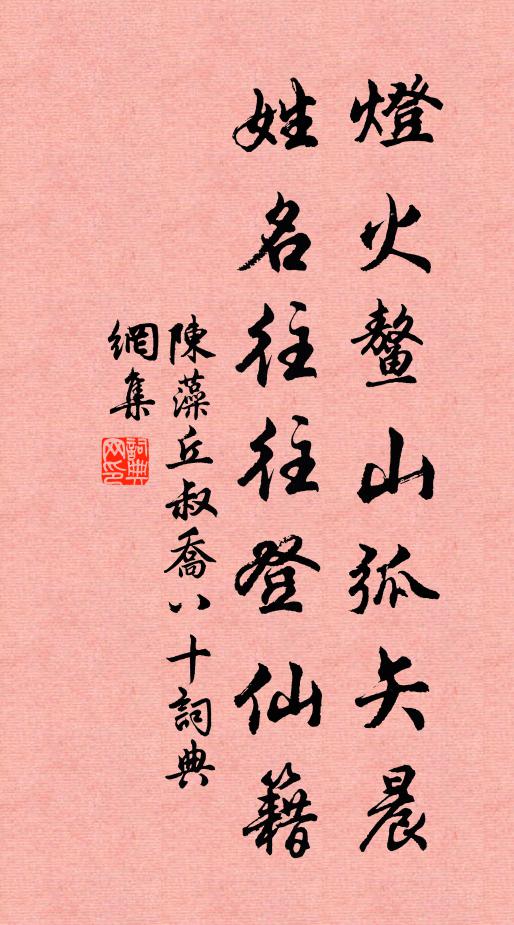 燈火鰲山弧矢晨
姓名往往登仙籍
陳藻丘叔喬八十詞典
網集
詞典網印